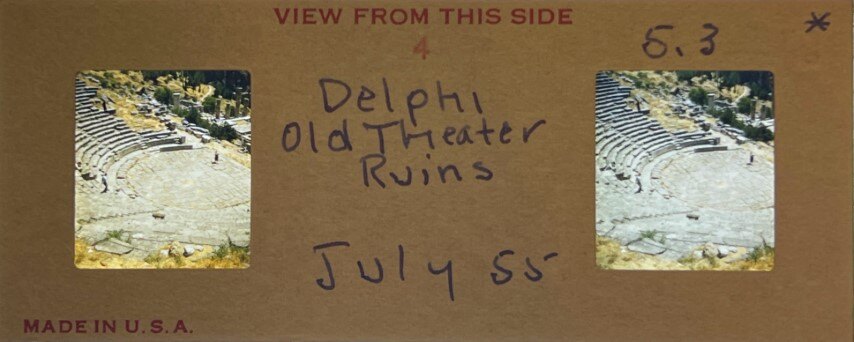 VIEW FROM THIS SIDE
4
5.3
*
Delphi
Old Theater
Ruins
July 55
MADE IN U.S.A.